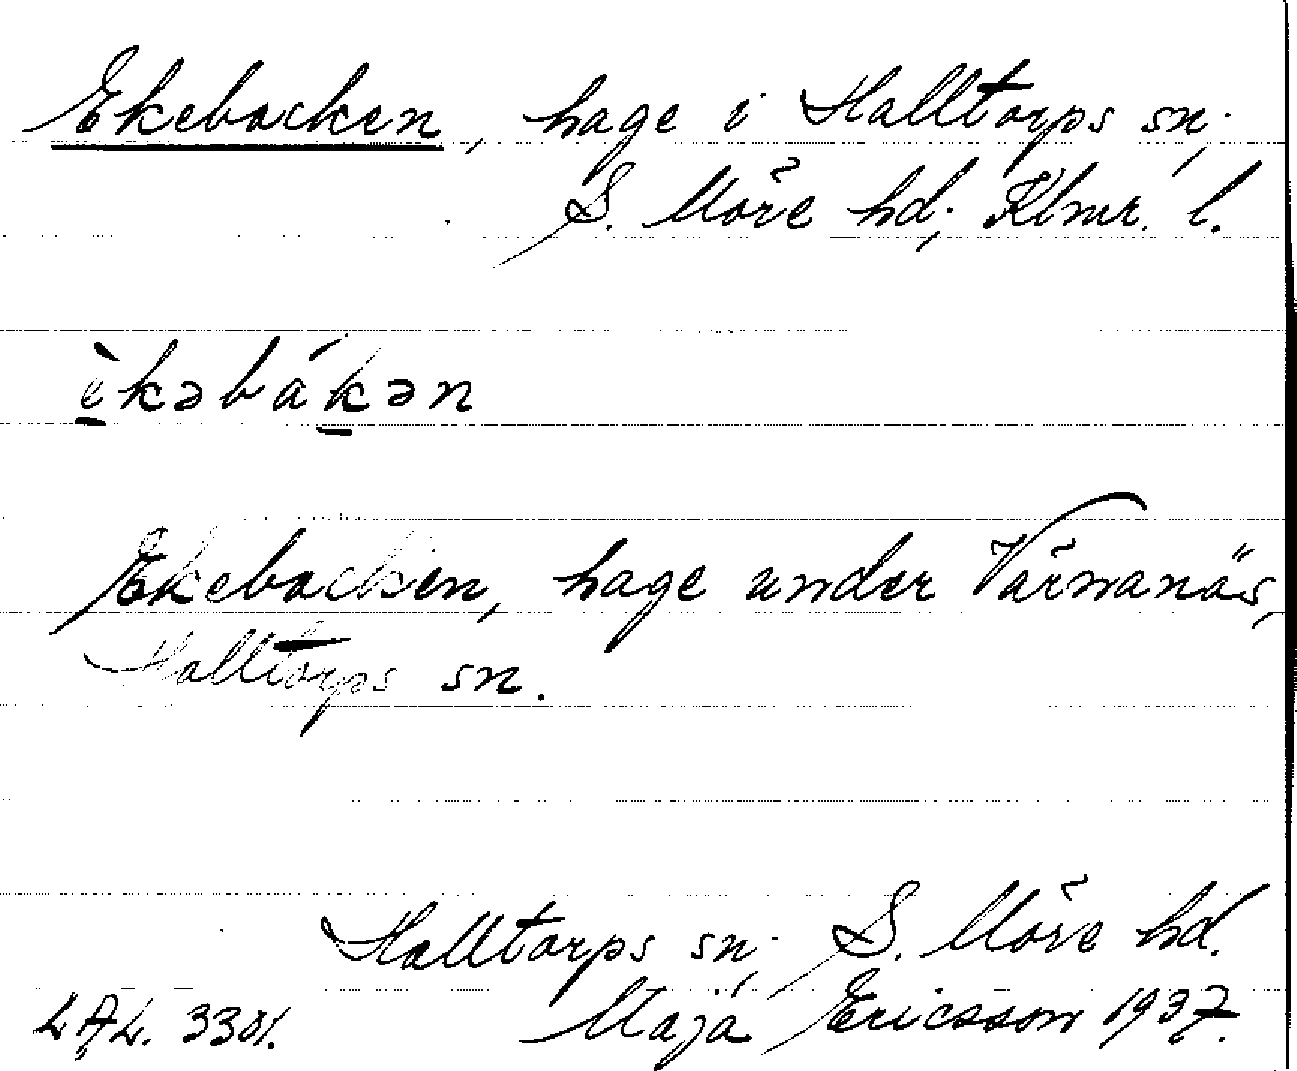 Ekebacken, hage i Halltorps sn;
S. Möre hd; Klmr. l.
èkəbákən
Ekebacken, hage under Värnanäs,
Halltorps sn.
Halltorps sn; S. Möre hd.
LAL. 3301. Maja Ericsson 1937.